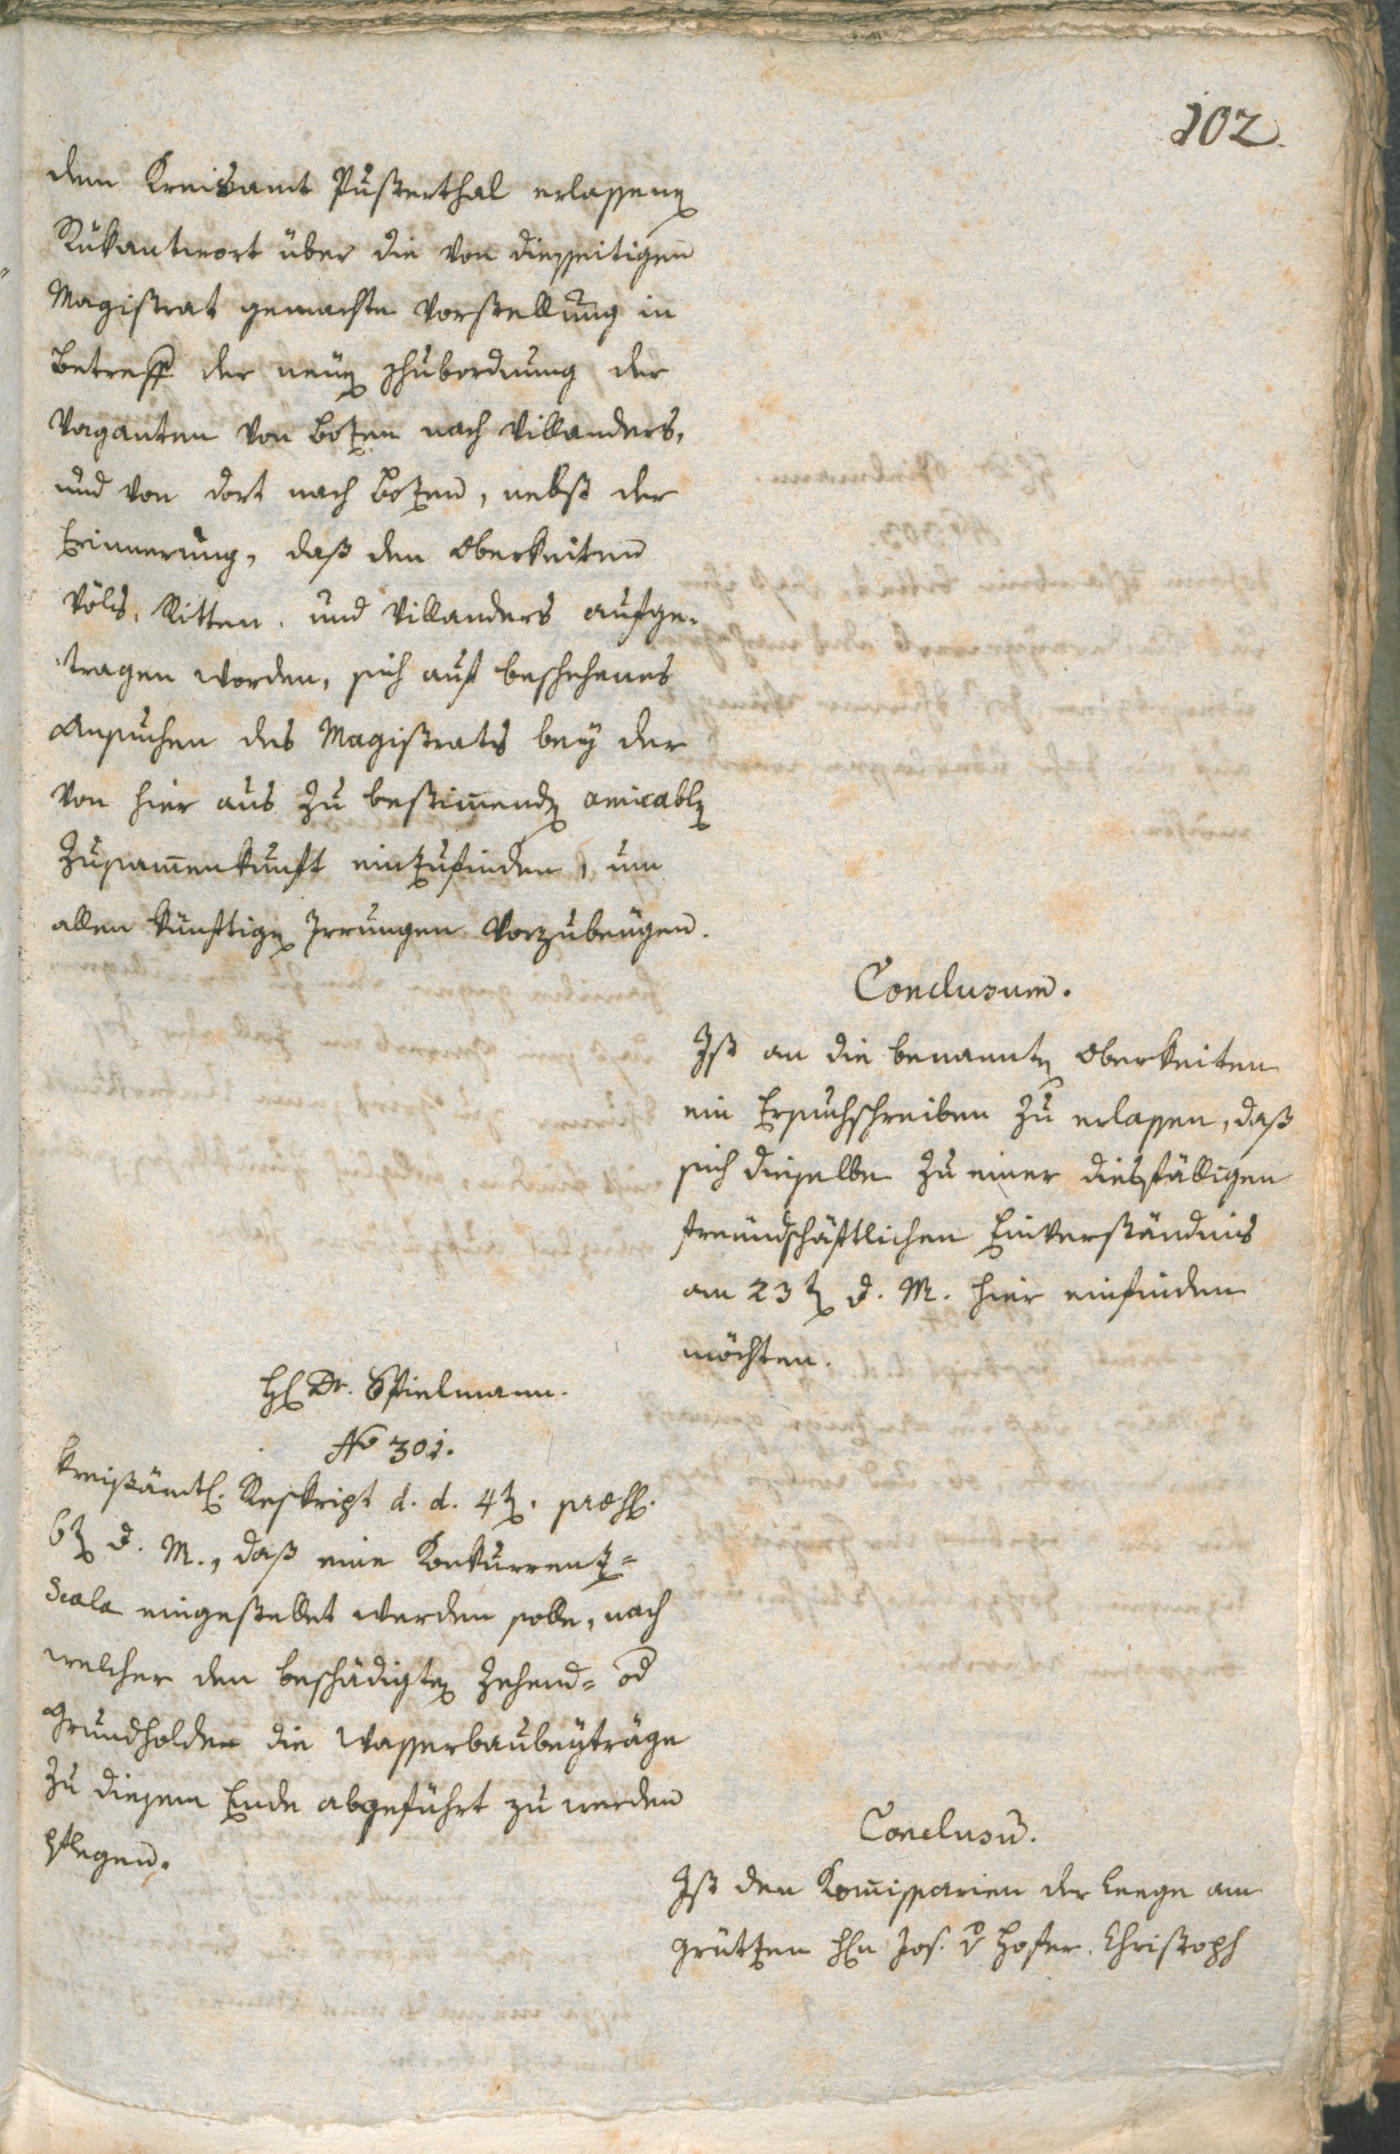 102.
dem Kreisamt Pusterthal erlassenen
Rükantwort über die von diesseitigen
Magistrat gemachte Vorstellung in
Betreff der neuen Schubordnung der
Vaganten von Bozen nach Villanders,
und von dort nach Bozen, nebst der
Erinnerung, daß den Oberkeiten
Völs, Ritten, und Villanders aufge-
tragen worden, sich auf beschehenes
Ansuchen des Magistrats bey der
von hier aus zu bestimmenden amicablen
Zusammenkunft einzufinden, um
allen künftigen Irrungen vorzubeugen.
Conclusum.
Ist an die benannten Oberkeiten
ein Ersuchschreiben zu erlassen, daß
sich dieselbe zu einer diesfälligen
freundschäftlichen Einverständnis
am 23ten d. M. hier einfinden
möchten.
H. Dr. Spielmann.
No 301.
Kreisämtl. Reskript d. d. 4ten. praes.
6ten d. M., daß eine Konkurrenz-
Scala eingestellet werden solle, nach
welcher den beschädigten Zehend- od
Grundholden die Wasserbaubeyträge
zu diesem Ende abgeführt zu werden
pflegen.
Conclusum.
Ist den Kommissarien der Leege am
Grützen Hn Jos. v Hofer, Christoph